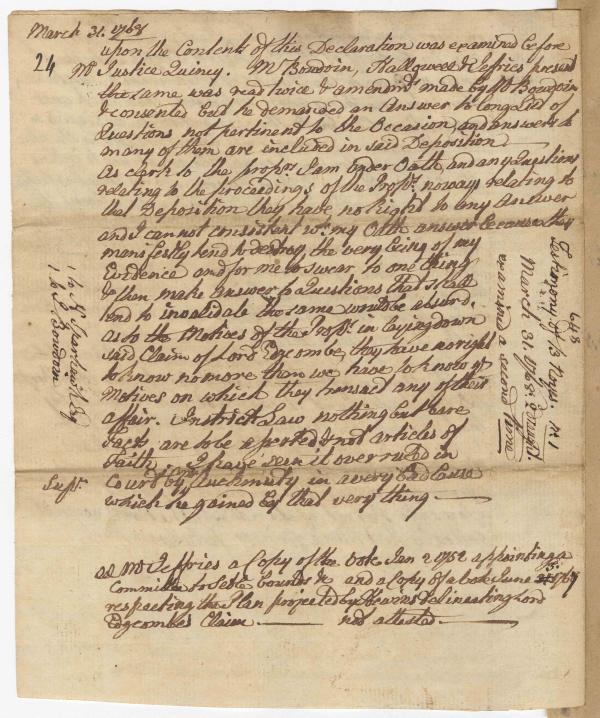 March 31. 1768
24
upon the Contents of this Declaration was examined before
Mr Justice Quincy. Mr Bowdoin, Hallowell & Jefries present
the same was read twice & amendmts made by Mr Bowdoin
& consented but he demanded an Answer to long List of
Questions not pertinent to the Occasion, and answers to
many of them are included in said Deposition
As clerk to the proprs I am under Oath, and any Questions
relating to the proceedings of the Proprs noways relating to
that Deposition they have no Right to any Answer
and I cannot consistent wth my Oath answer because they
manifestly tend to destroy the very being of my
Evidence and for me to swear to one thing
& then make answer to Questions that shall
tend to invalidate the same would be absurd.
as to the Motives of the Proprs in laying down
said Claim of Lord Edgcombe, they have no right
to know no more than we have to know ye
Motives on which they transact any of their
affair. In strict Law nothing but bare
Facts are to be reported & not articles of
Faith, I have seen it over ruled in
Court by Auchmuty in a very bad Cause
which he gained by that very thing.
Supr.
1 to
1 to J. Bowdoin
Testimony of
March 31. 1768
examined a second Time
648
as Mr Jeffries a Copy of the Vote Jan 2 1752 appointing a
Committee to settle bounds & and a Copy of a Vote June 1767
respecting the Plan projected by Hewins delineating Lord
Edgcombes Claim. not attested.